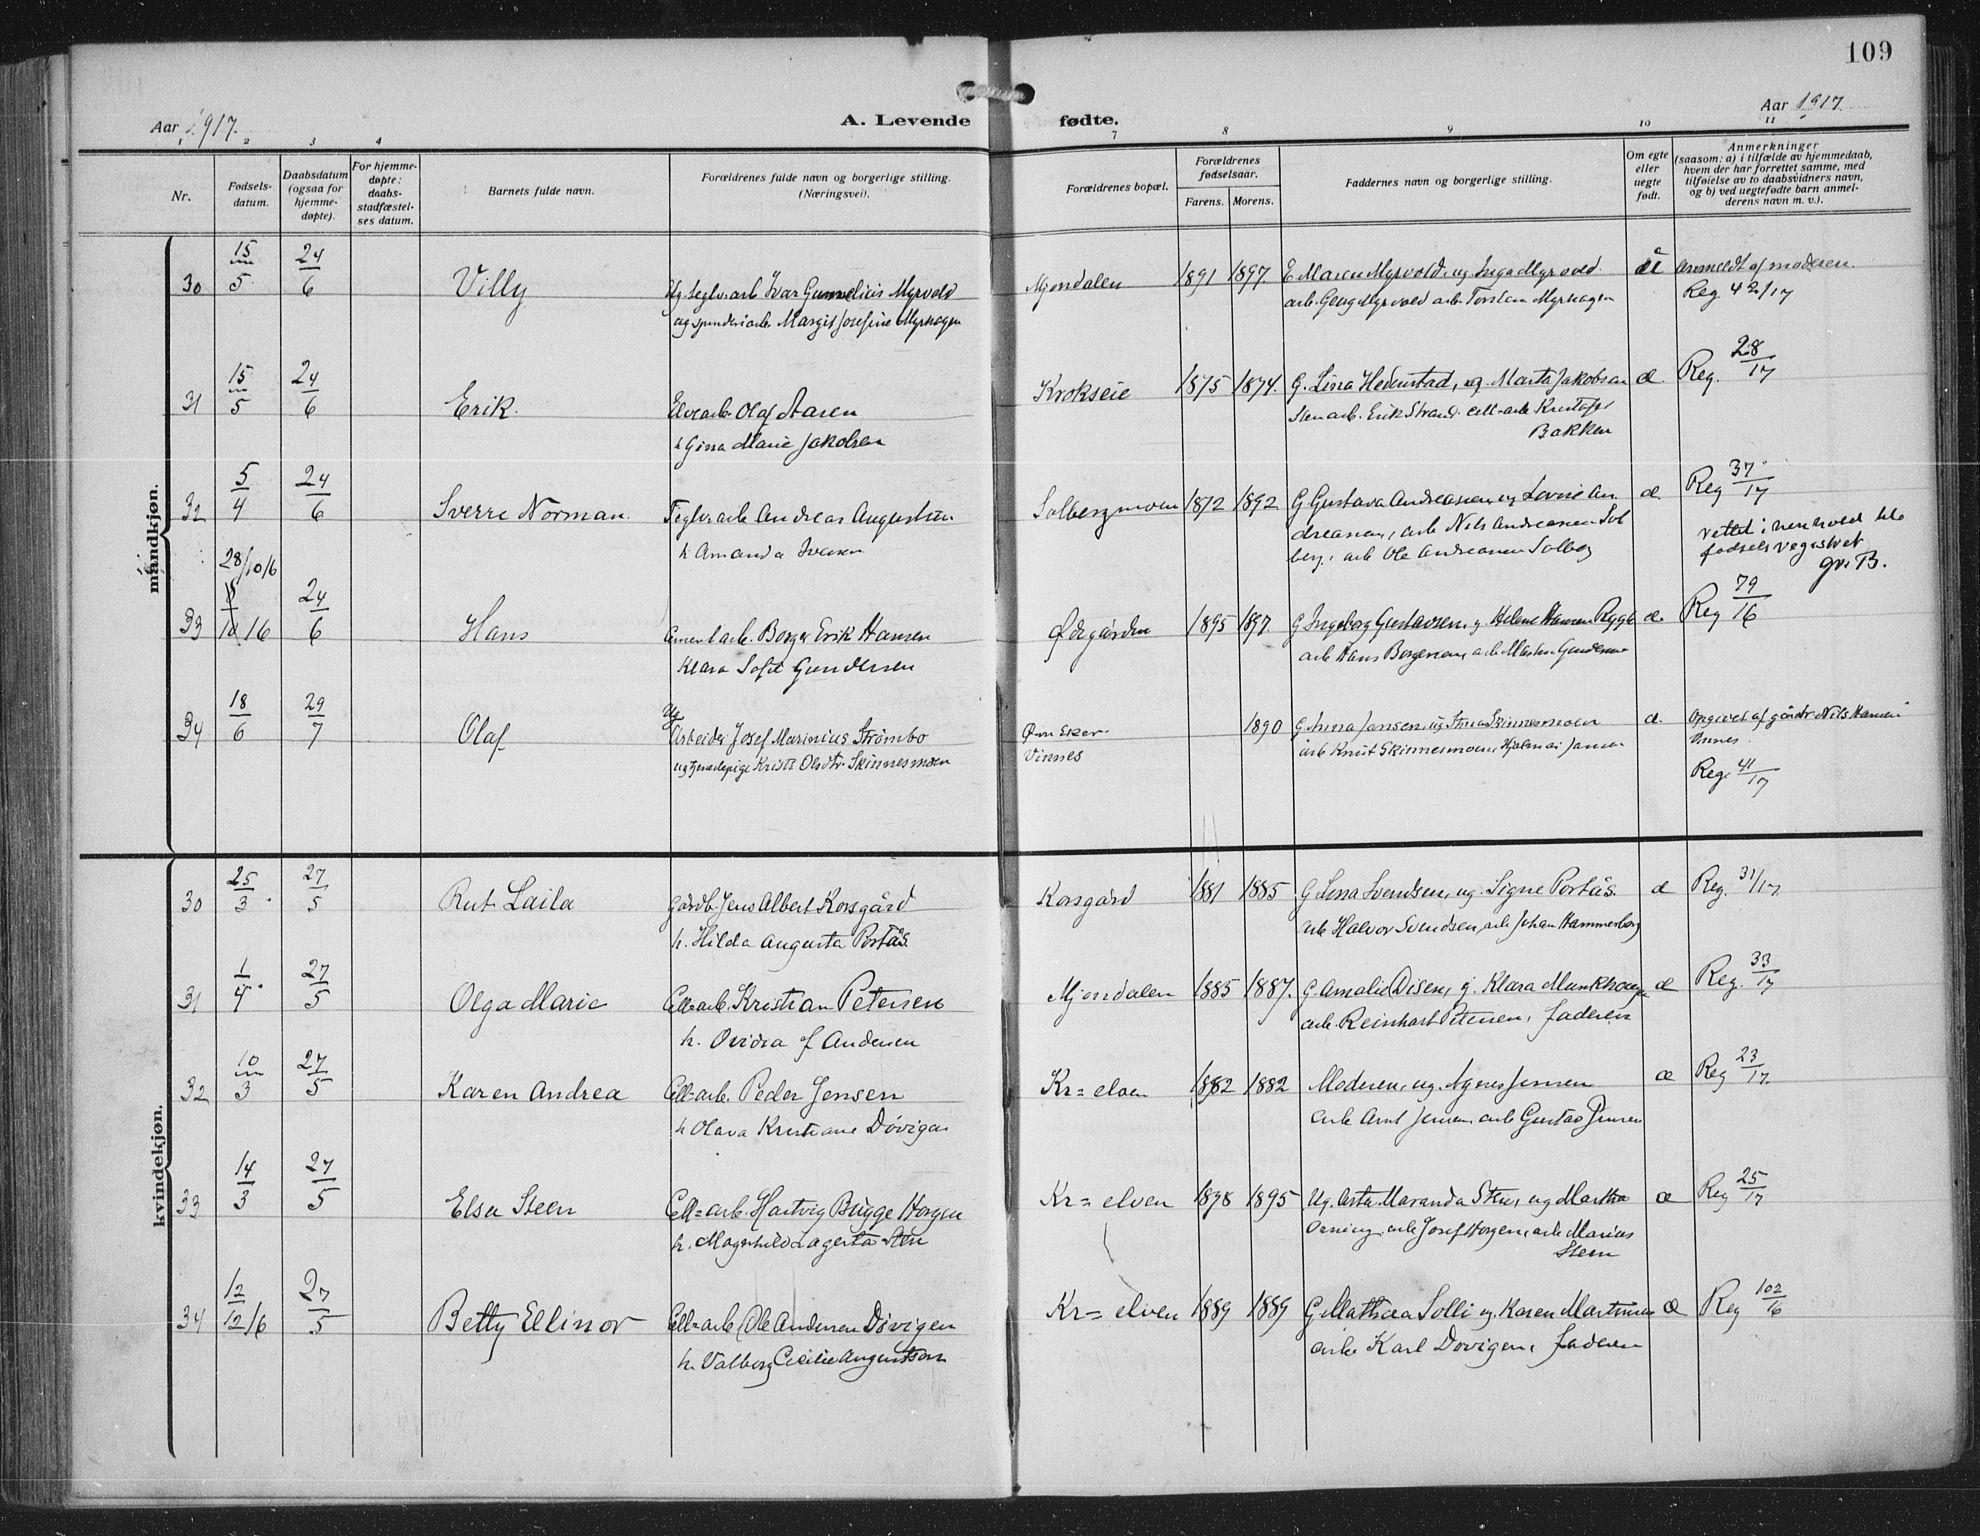 109
Aar 1917.
A. Levende fødte.
Aar 1917
1 2 3 4 7 8 9 10 11
Nr.
Fødsels-
datum.
Daabsdatum
(ogsaa for
hjemme-
døpte).
For hjemme-
døpte:
daabs-
stadfæstel-
ses datum.
Barnets fulde navn.
Forældrenes fulde navn og borgerlige stilling.
(Næringsvei).
Forældrenes bopæl.
Forældrenes
fødselsaar.
Farens. Morens.
Faddernes navn og borgerlige stilling.
Om egte
eller
uegte
født.
Anmerkninger
(saasom: a) i tilfælde av hjemmedaab,
hvem der har forrettet samme, med
tilføielse av to daabsvidners navn,
og b) ved uegtefødte barn anmel-
derens navn m. v.).
mandkjøn.
30 15/5 24/6 Villy Ug. teglv.arb Ivar Myrvold Mjøndalen 1891 1897. E. Maren Myrvold, ug. Inga Myrvold uæ Anmeldt af moderen.
og spinderiarb. Margit Josefine Myrhagen arb. Georg Myrvold arb. Torsten Myrhagen Reg 42/17
31 15/5 24/6 Erik. Elvearb Olaf Aasen Krokseie 1875 1874. G. Lina Hedenstad, ug. Marta Jakobsen æ. Reg. 28/17
h Gina Marie Jakobsen arb. Erik Strand. cell-arb Kristofer
Bakken
32 5/4 24/6 Sverre Norman. Teglv.arb Andreas Augustsen Solbergmoen 1872 1892 G Gustava Andreasen ug Lovise An- æ Reg 37/17
h Amanda Iversen dreasen, arb Nils Andreasen Sol
berg, arb Ole Andreasen Solberg
rettet i henhold til
fødselsregistret
28/10 16
33 8/10 16 24/6 Hans Cementarb. Borger Erik Hansen Ødegården 1895 1897. G Ingeborg Gustavsen, g. Helene Hansen Rygh æ. Reg 79/16
Klara Sofie Gundersen arb Hans Borgersen, arb Marten Gundersen
34 18/6 29/7 Olaf Ug
Arbeider Josef Marinius Strømbo Øvre Eker 1890 G Anna Jansen, ug Stina Skinnesmoen æ. Opgivet af gårdbr Nils Hansen
ug tjenestepige Kristi Olsdtr. Skinnesmoen Vinnes arb Knut Skinnesmoen, Hjalmar Jansen Vinnes
Reg. 41/17
kvindekjøn.
30 25/3 27/5 Rut Laila Gårdb. Jens Albert Korsgård Korsgård 1881 1885 G Lina Svendsen, ug. Signe Portås æ Reg. 31/17
h. Hilda Augusta Portås. arb Halvor Svendsen, arb Johan Hammerborg
31 1/4 27/5 Olga Marie Cell=arb. Kristian Petersen Mjøndalen 1885 1887. G Amalie Disen, g. Klara Munkhaugen æ Reg. 33/17
h. Ovidia f Andersen arb. Reinhart Petersen, faderen
32 10/3 27/5 Karen Andrea Cell=arb. Peder Jensen Kr=elven 1882 1882 Moderen, ug. Agnes Jensen æ Reg 23/17
h Olava Kristiane Døvigen arb Arnt Jensen, arb Gustav Jensen
33 14/3 27/5 Elsa Steen Cell=arb. Hartvig Bugge Horgen Kr=elven 1898 1895 Ug. Asta Maranda Steen, ug Martha æ Reg 25/17
h. Magnhild Lagerta Steen Orning, arb Josef Horgen, arb Marius
Steen
34 12/12 16 27/5 Betty Ellinor Cell=arb Ole Andersen Døvigen Kr=elven 1889 1889 G Mathea Solli ug. Karen Martinsen æ Reg 102/16
h. Valborg Cecilie Augustsen arb Karl Dovigen, faderen